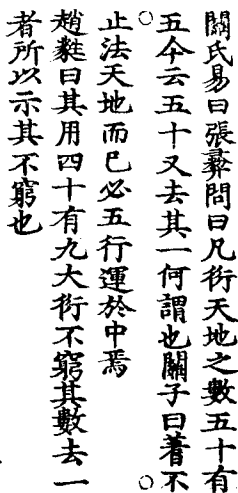 關氏易曰張彛問曰凡衍天地之數五十有
五今云五十又去其一何謂也關子曰蓍不
止法天地而已必五行運於中焉
趙蕤曰其用四十有九大衍不窮其數去一
者所以示其不窮也